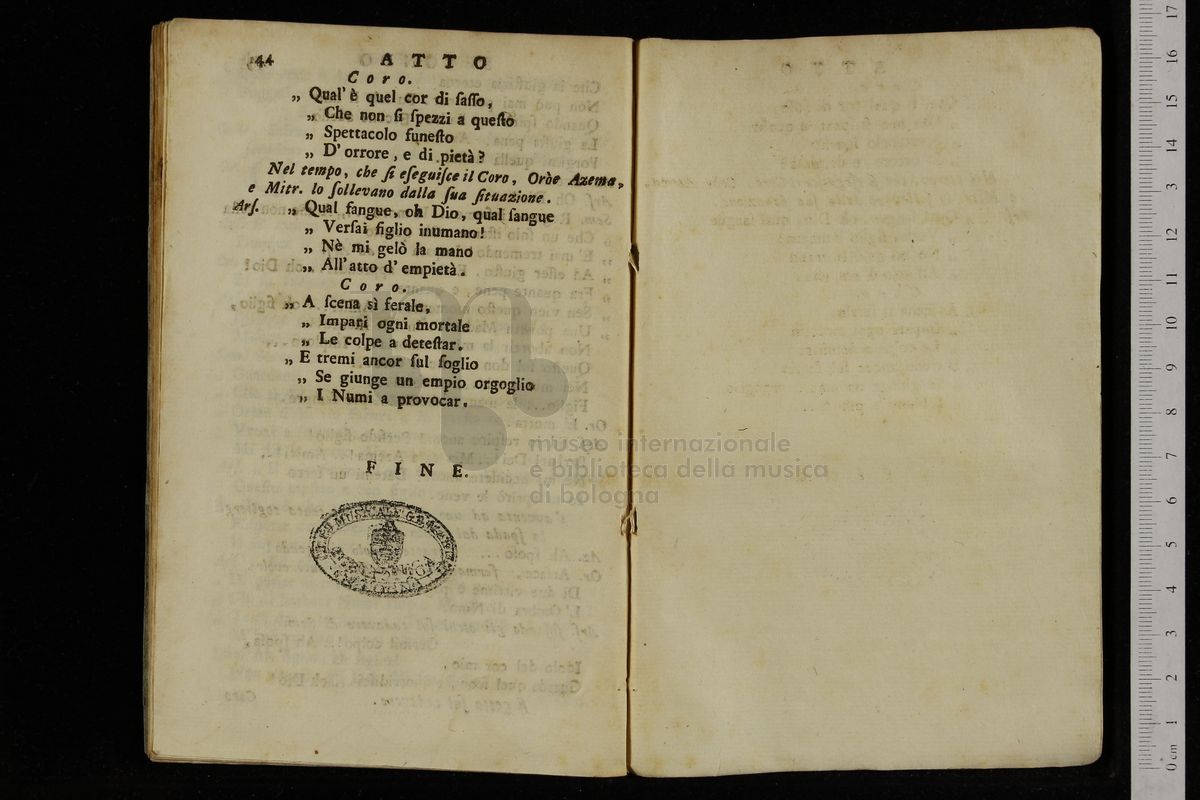 44 ATTO
Coro.
„ Qual' è quel cor di ſaſſo,
„ Che non ſi ſpezzi a queſto
„ Spettacolo funeſto
„ D' orrore, e di pietà?
Nel tempo, che ſi eſeguiſce il Coro, Oròe Azema,
e Mitr. lo ſollevano dalla ſua ſituazione.
Arſ. „ Qual ſangue, oh Dio, qual ſangue
„ Verſai figlio inumano!
„ Nè mi gelò la mano
„ All' atto d' empietà.
Coro.
„ A ſcena sì ferale,
„ Impari ogni mortale
„ Le colpe a deteſtar.
„ E tremi ancor ſul ſoglio
„ Se giunge un empio orgoglio
„ I Numi a provocar.
FINE.
museo internazionale
e biblioteca della musica
di bologna
0 cm 1 2 3 4 5 6 7 8 9 10 11 12 13 14 15 16 17